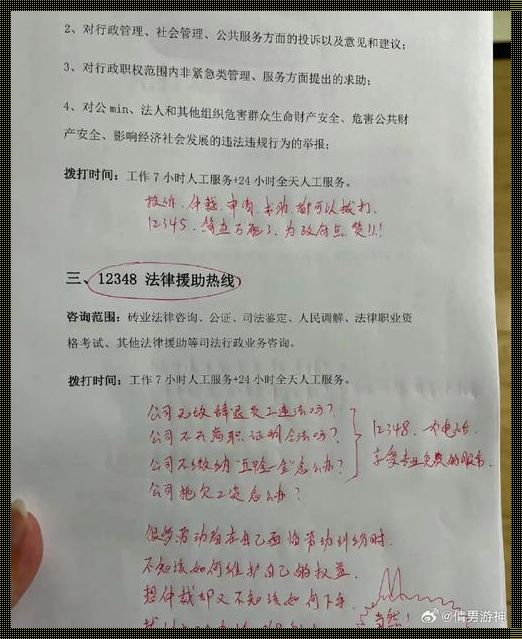 2、对行政管理、社会管理、公共服务方面的投诉以及意见和建议；
3、对行政职权范围内非紧急类管理、服务方面提出的求助；
4、对公min、法人和其他组织危害群众生命财产安全、危害公共财
产安全、影响经济社会发展的违法违规行为的举报；
拨打时间：工作7小时人工服务+24小时全天人工服务。
投诉、仲裁、申请、求助、都可以拨打、
12345、简直万能了、为政府点赞!!!
三、12348 法律援助热线
咨询范围：砖业法律咨询、公证、司法鉴定、人民调解、法律职业资
格考试、其他法律援助等司法行政业务咨询。
拨打时间：工作7小时人工服务+24小时全天人工服务。
公司无故辞退员工违法吗？
公司不开离职证明合法吗？
公司不缴纳五险一金怎么办？
公司拖欠工资怎么办？
12348、一个电话
享受专业免费的服务.
很多劳动者在自己面临劳动纠纷时.
不知该如何维护自己的权益.
想仲裁却又不知该如何下手.
当然！
@倩男游神